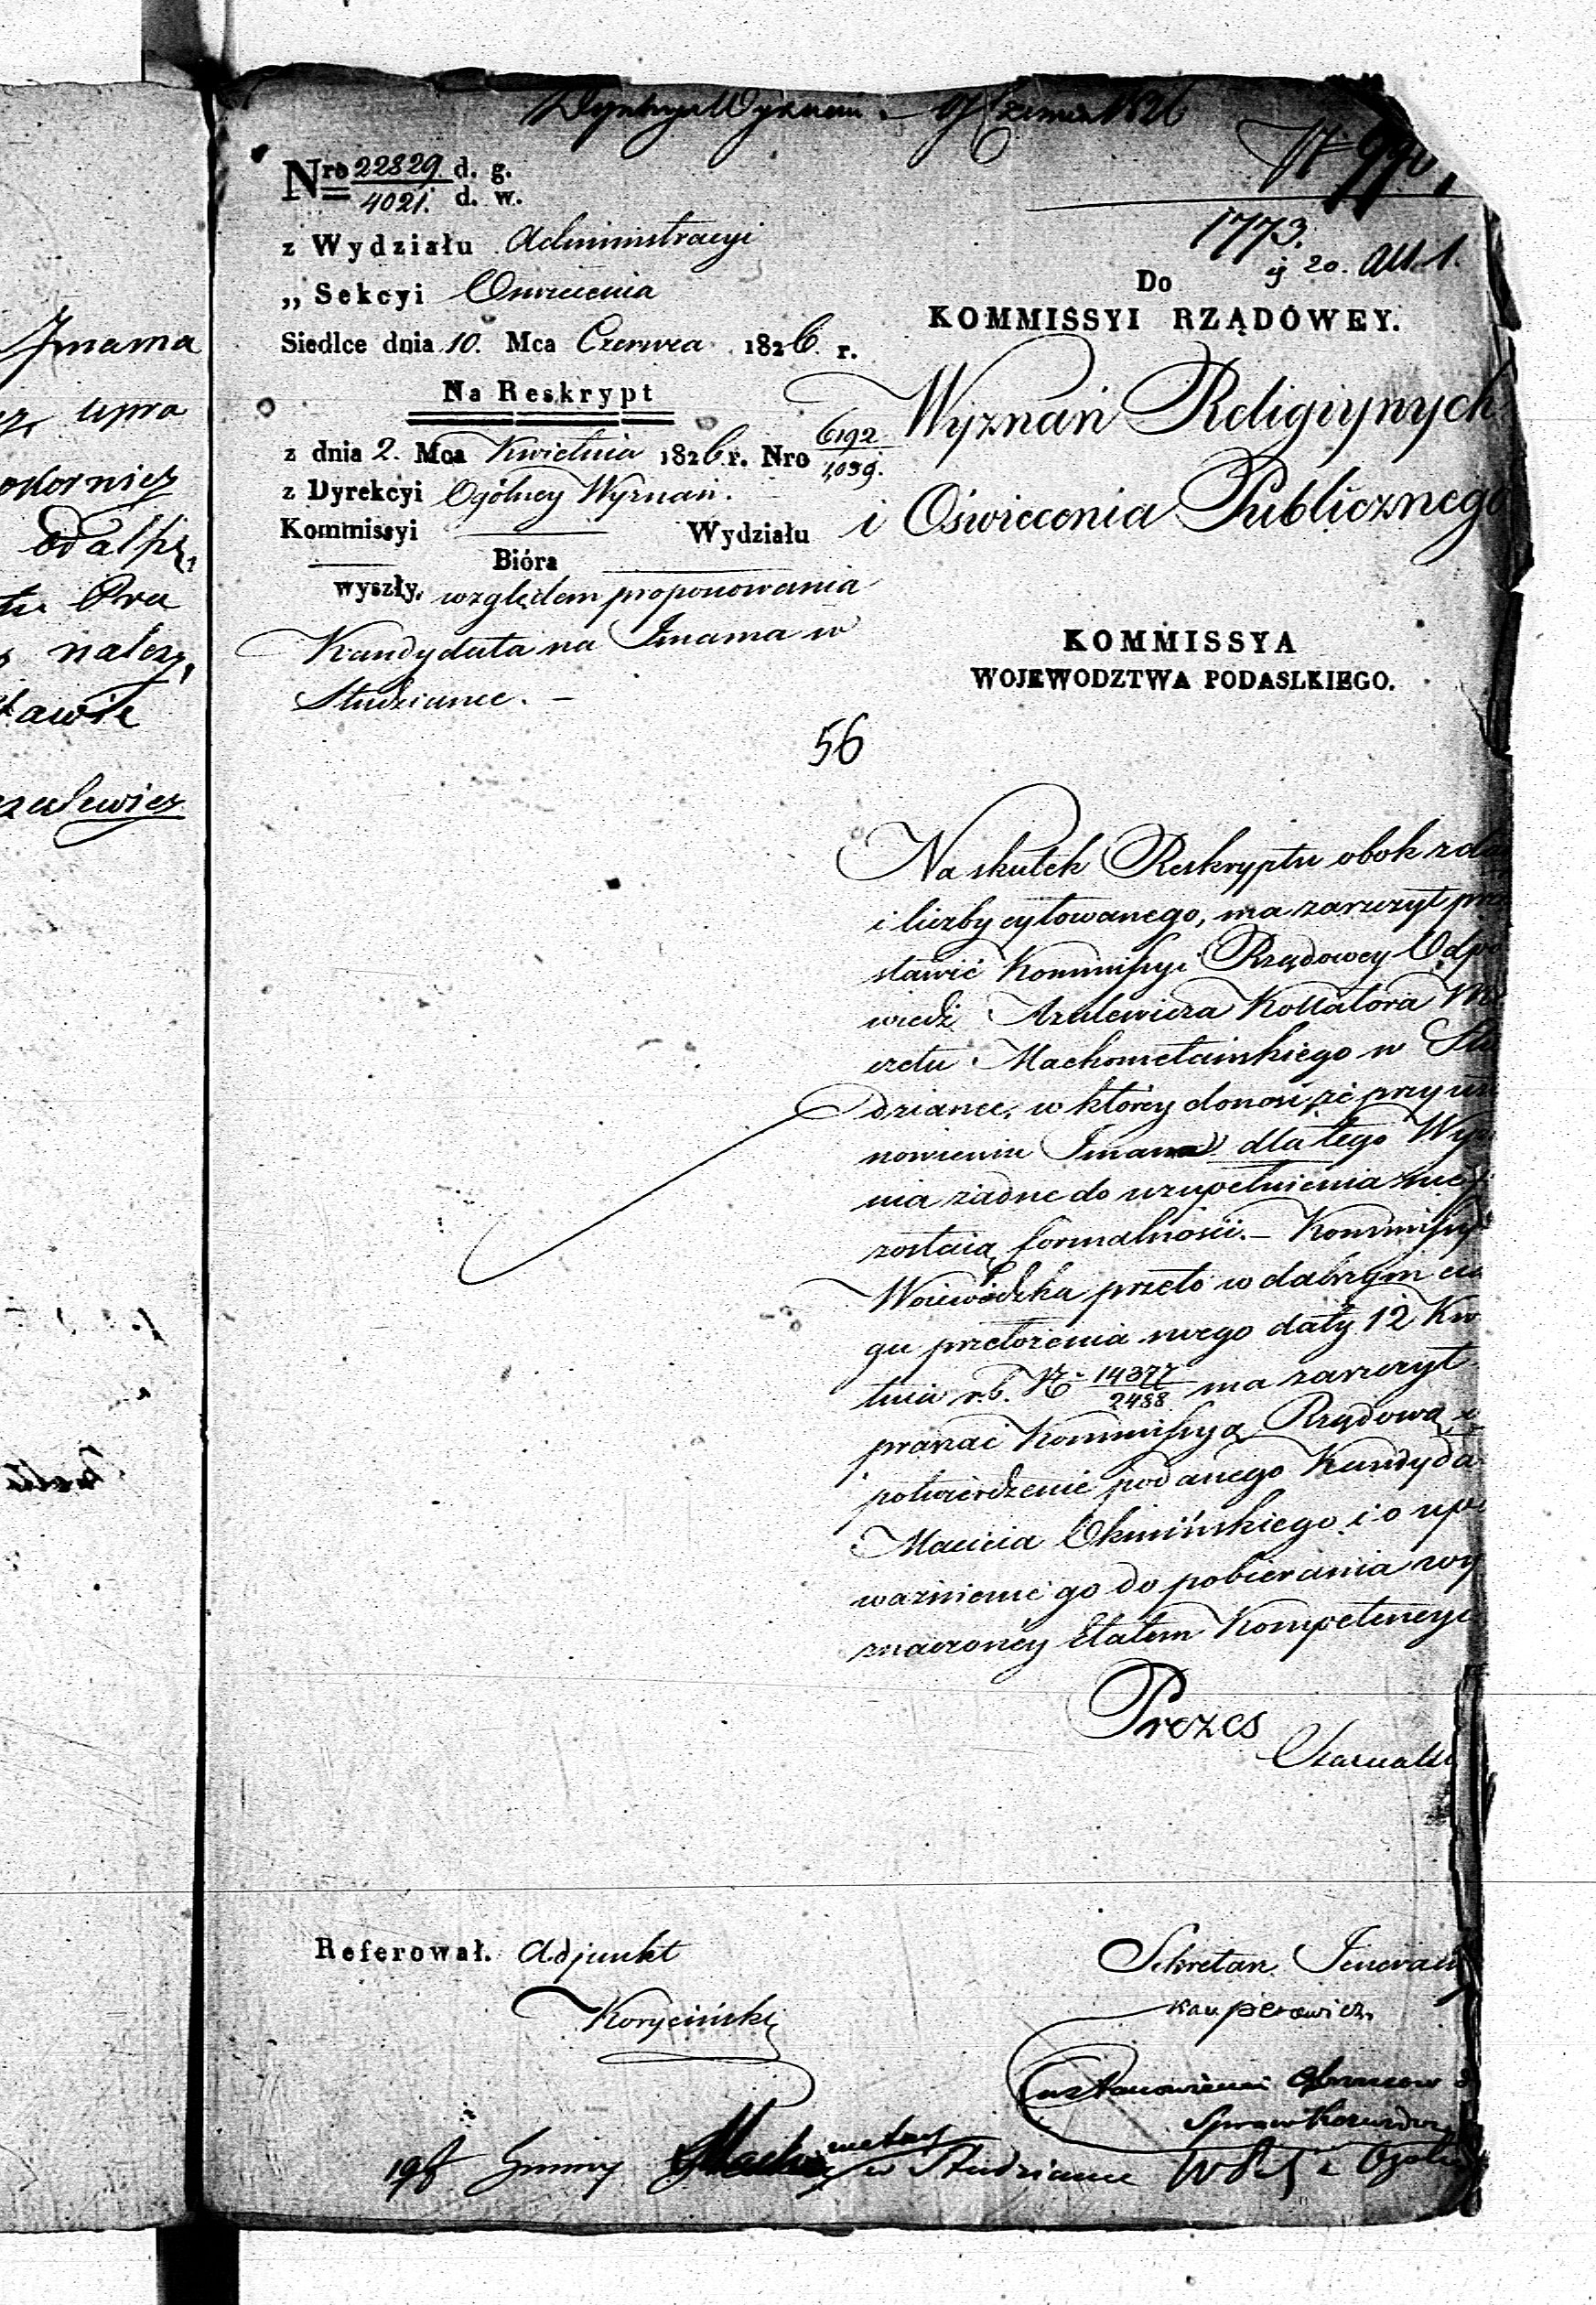 Imama
upra
okornicz
należy
tawie
zulewicz
Dyrekcya Wyznań. 17 Czerwca 1826
1773.
20. All. 1.
Nro 22829 d. g.
4021. d. w.
z Wydziału Administracyi
„ Sekcyi Oswiecenia
Siedlce dnia 10. Mca Czerwca 1826. r.
Na Reskrypt
z dnia 2. Mca Kwietnia 1826 r. Nro 6192
1,039.
z Dyrekcyi Ogólney Wyznań.
Kommissyi Wydziału
Bióra
wyszły, względem proponowania
Kandydata na Imama w
Studziance. —
Do
KOMMISSYI RZĄDOWEY.
Wyznań Religiynych
i Oświecenia Publicznego
KOMMISSYA
WOJEWODZTWA PODASLKIEGO.
56
Na skutek Reskryptu obok z da
i liczby cytowanego, ma zaszczyt prze
stawić Kommissyi Rządowey Odpo
wiedź Azulewicza Kollatora Me
czetu Machometańskiego w Stu
dziance, w którey donosi, że przy usta
nowieniu Imama dla tego Wyzna
nia żadne do uzupełnienia nie
zostaią formalności. — Kommissya
Woiewódzka przeto w dalszym cią
gu przełożenia swego daty 12 Kwie
tnia r. b. No 14377
2488 ma zaszczyt
prosić Kommissyą Rządową o
potwierdzenie podanego Kandyda
Macieia Okmińskiego i o upo
ważnienie go do pobierania wy
znaczoney Etatem Kompetencyi
Prezes
Referował. Adjunkt
Koryciński
Sekretarz Jeneralny
Kasperowicz
198 Gminy w Studziance